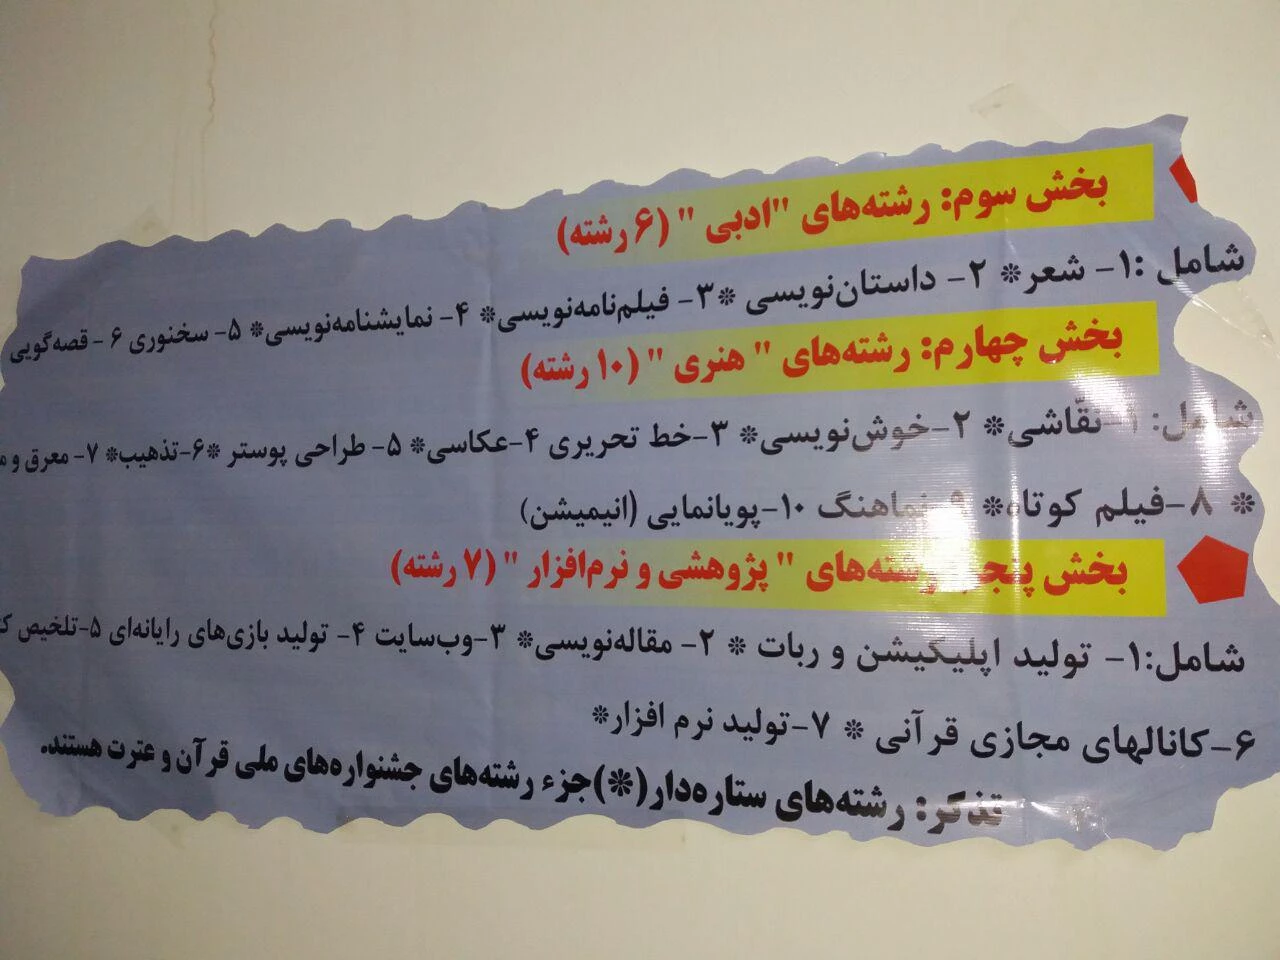 بخش سوم: رشته‌های "ادبی" (۶ رشته)
شامل :۱- شعر* ۲- داستان‌نویسی *۳- فیلم‌نامه‌نویسی* ۴- نمایشنامه‌نویسی* ۵- سخنوری ۶ - قصه‌گویی
بخش چهارم: رشته‌های " هنری " (۱۰ رشته)
شامل: ۱-نقّاشی* ۲-خوش‌نویسی* ۳-خط تحریری ۴-عکاسی* ۵- طراحی پوستر *۶-تذهیب* ۷- معرق و
* ۸-فیلم کوتاه* ۹-نماهنگ ۱۰-پویانمایی (انیمیشن)
بخش پنجم: رشته‌های " پژوهشی و نرم‌افزار " (۷ رشته)
شامل:۱- تولید اپلیکیشن و ربات * ۲- مقاله‌نویسی* ۳-وب‌سایت ۴- تولید بازی‌های رایانه‌ای ۵-تلخیص
۶-کانالهای مجازی قرآنی * ۷-تولید نرم افزار*
تذکر: رشته‌های ستاره‌دار(*)جزء رشته‌های جشنواره‌های ملی قرآن و عترت هستند.